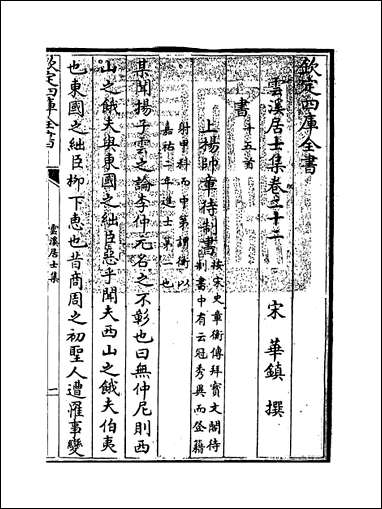 欽定四庫全書
雲溪居士集卷二十二
宋 華鎮 撰
書 十五首
上楊帥章待制書 按宋史章衡傳拜寳文閣待
制書中有云冠秀異而登籍
射甲科而中第謂衡以
嘉祐二年進士第一也
某聞揚子雲之論李仲元名之不彰也曰無仲尼則西
山之餓夫與東國之絀臣惡乎聞夫西山之餓夫伯夷
也東國之絀臣柳下惠也昔商周之初聖人遭罹事變
欽定四庫全書
雲溪居士集
一